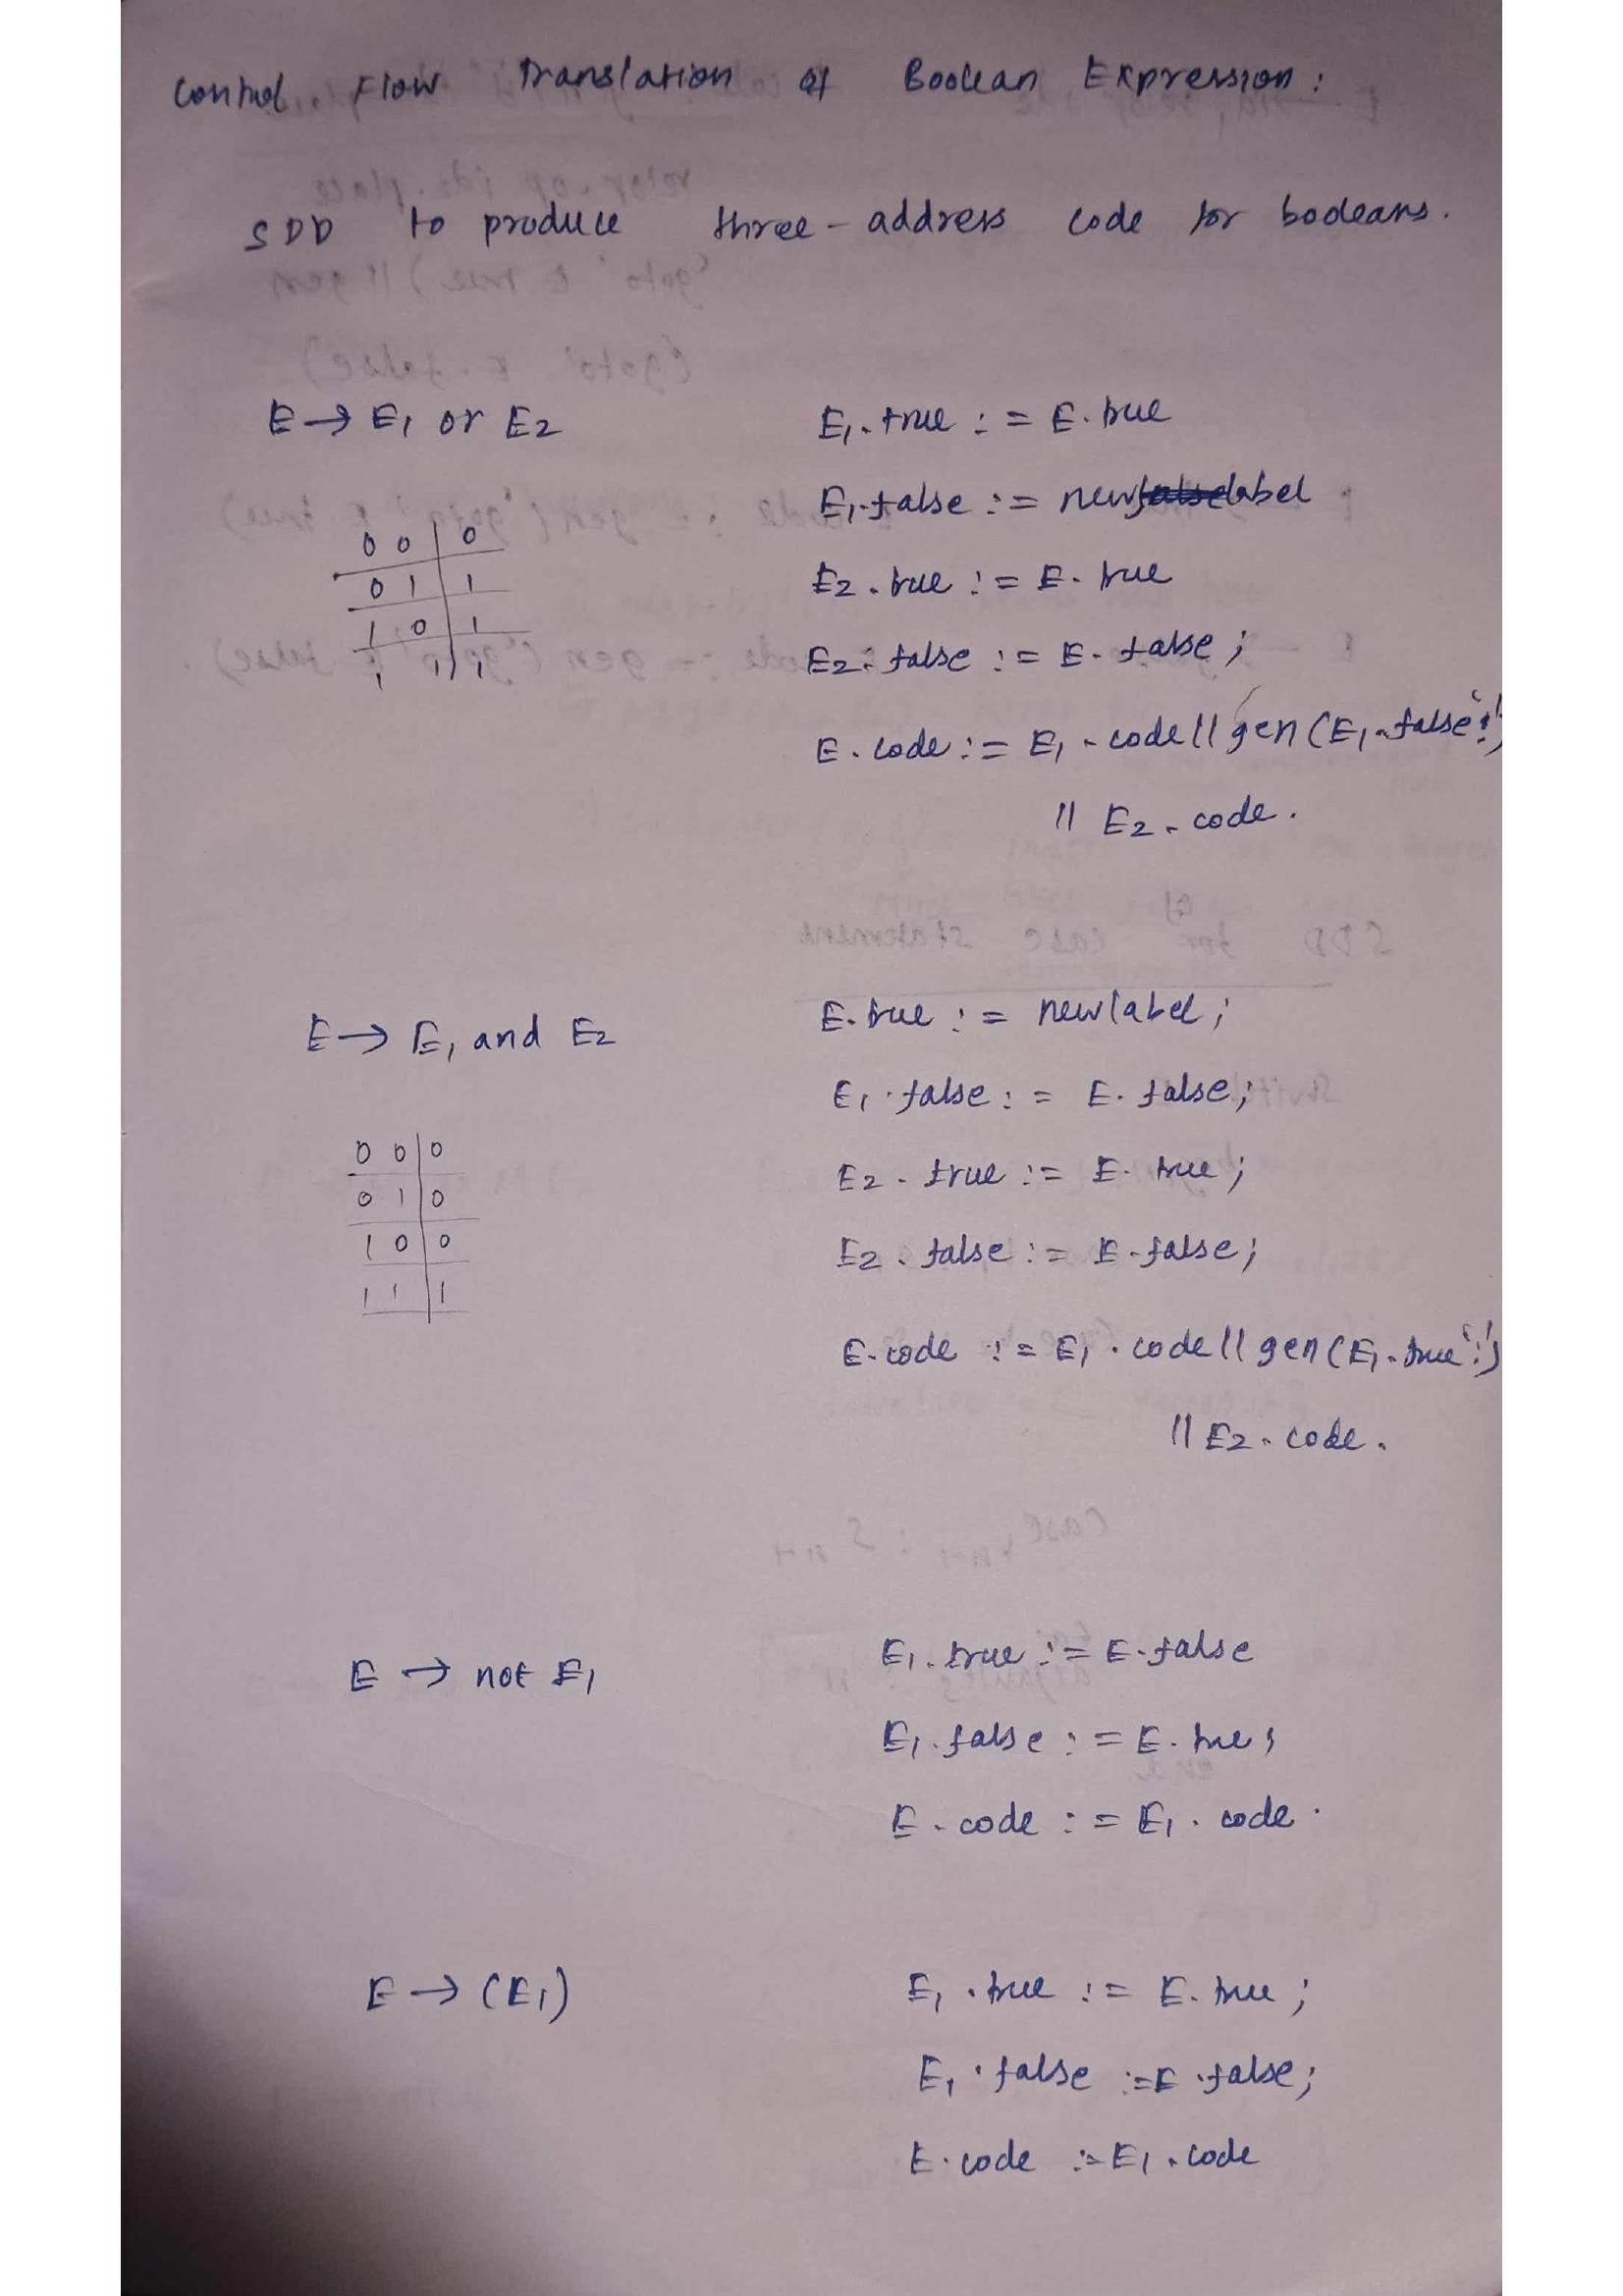 Control Flow Translation of Boolean Expression :
SDD to produce three - address code for booleans.
E → E1 or E2
E1.true := E.true
E1.false := newlabel
E2.true := E.true
E2.false := E.false ;
E.code := E1.code || gen (E1.false ':')
|| E2.code.
0 0 | 0
0 1 | 1
1 0 | 1
1 1 | 1
E → E1 and E2
E.true := newlabel ;
E1.false := E.false ;
E2.true := E.true ;
E2.false := E.false ;
E.code := E1.code || gen (E1.true ':')
|| E2.code.
0 0 | 0
0 1 | 0
1 0 | 0
1 1 | 1
E → not E1
E1.true := E.false
E1.false := E.true ;
E.code := E1.code.
E → (E1)
E1.true := E.true ;
E1.false := E.false ;
E.code := E1.code